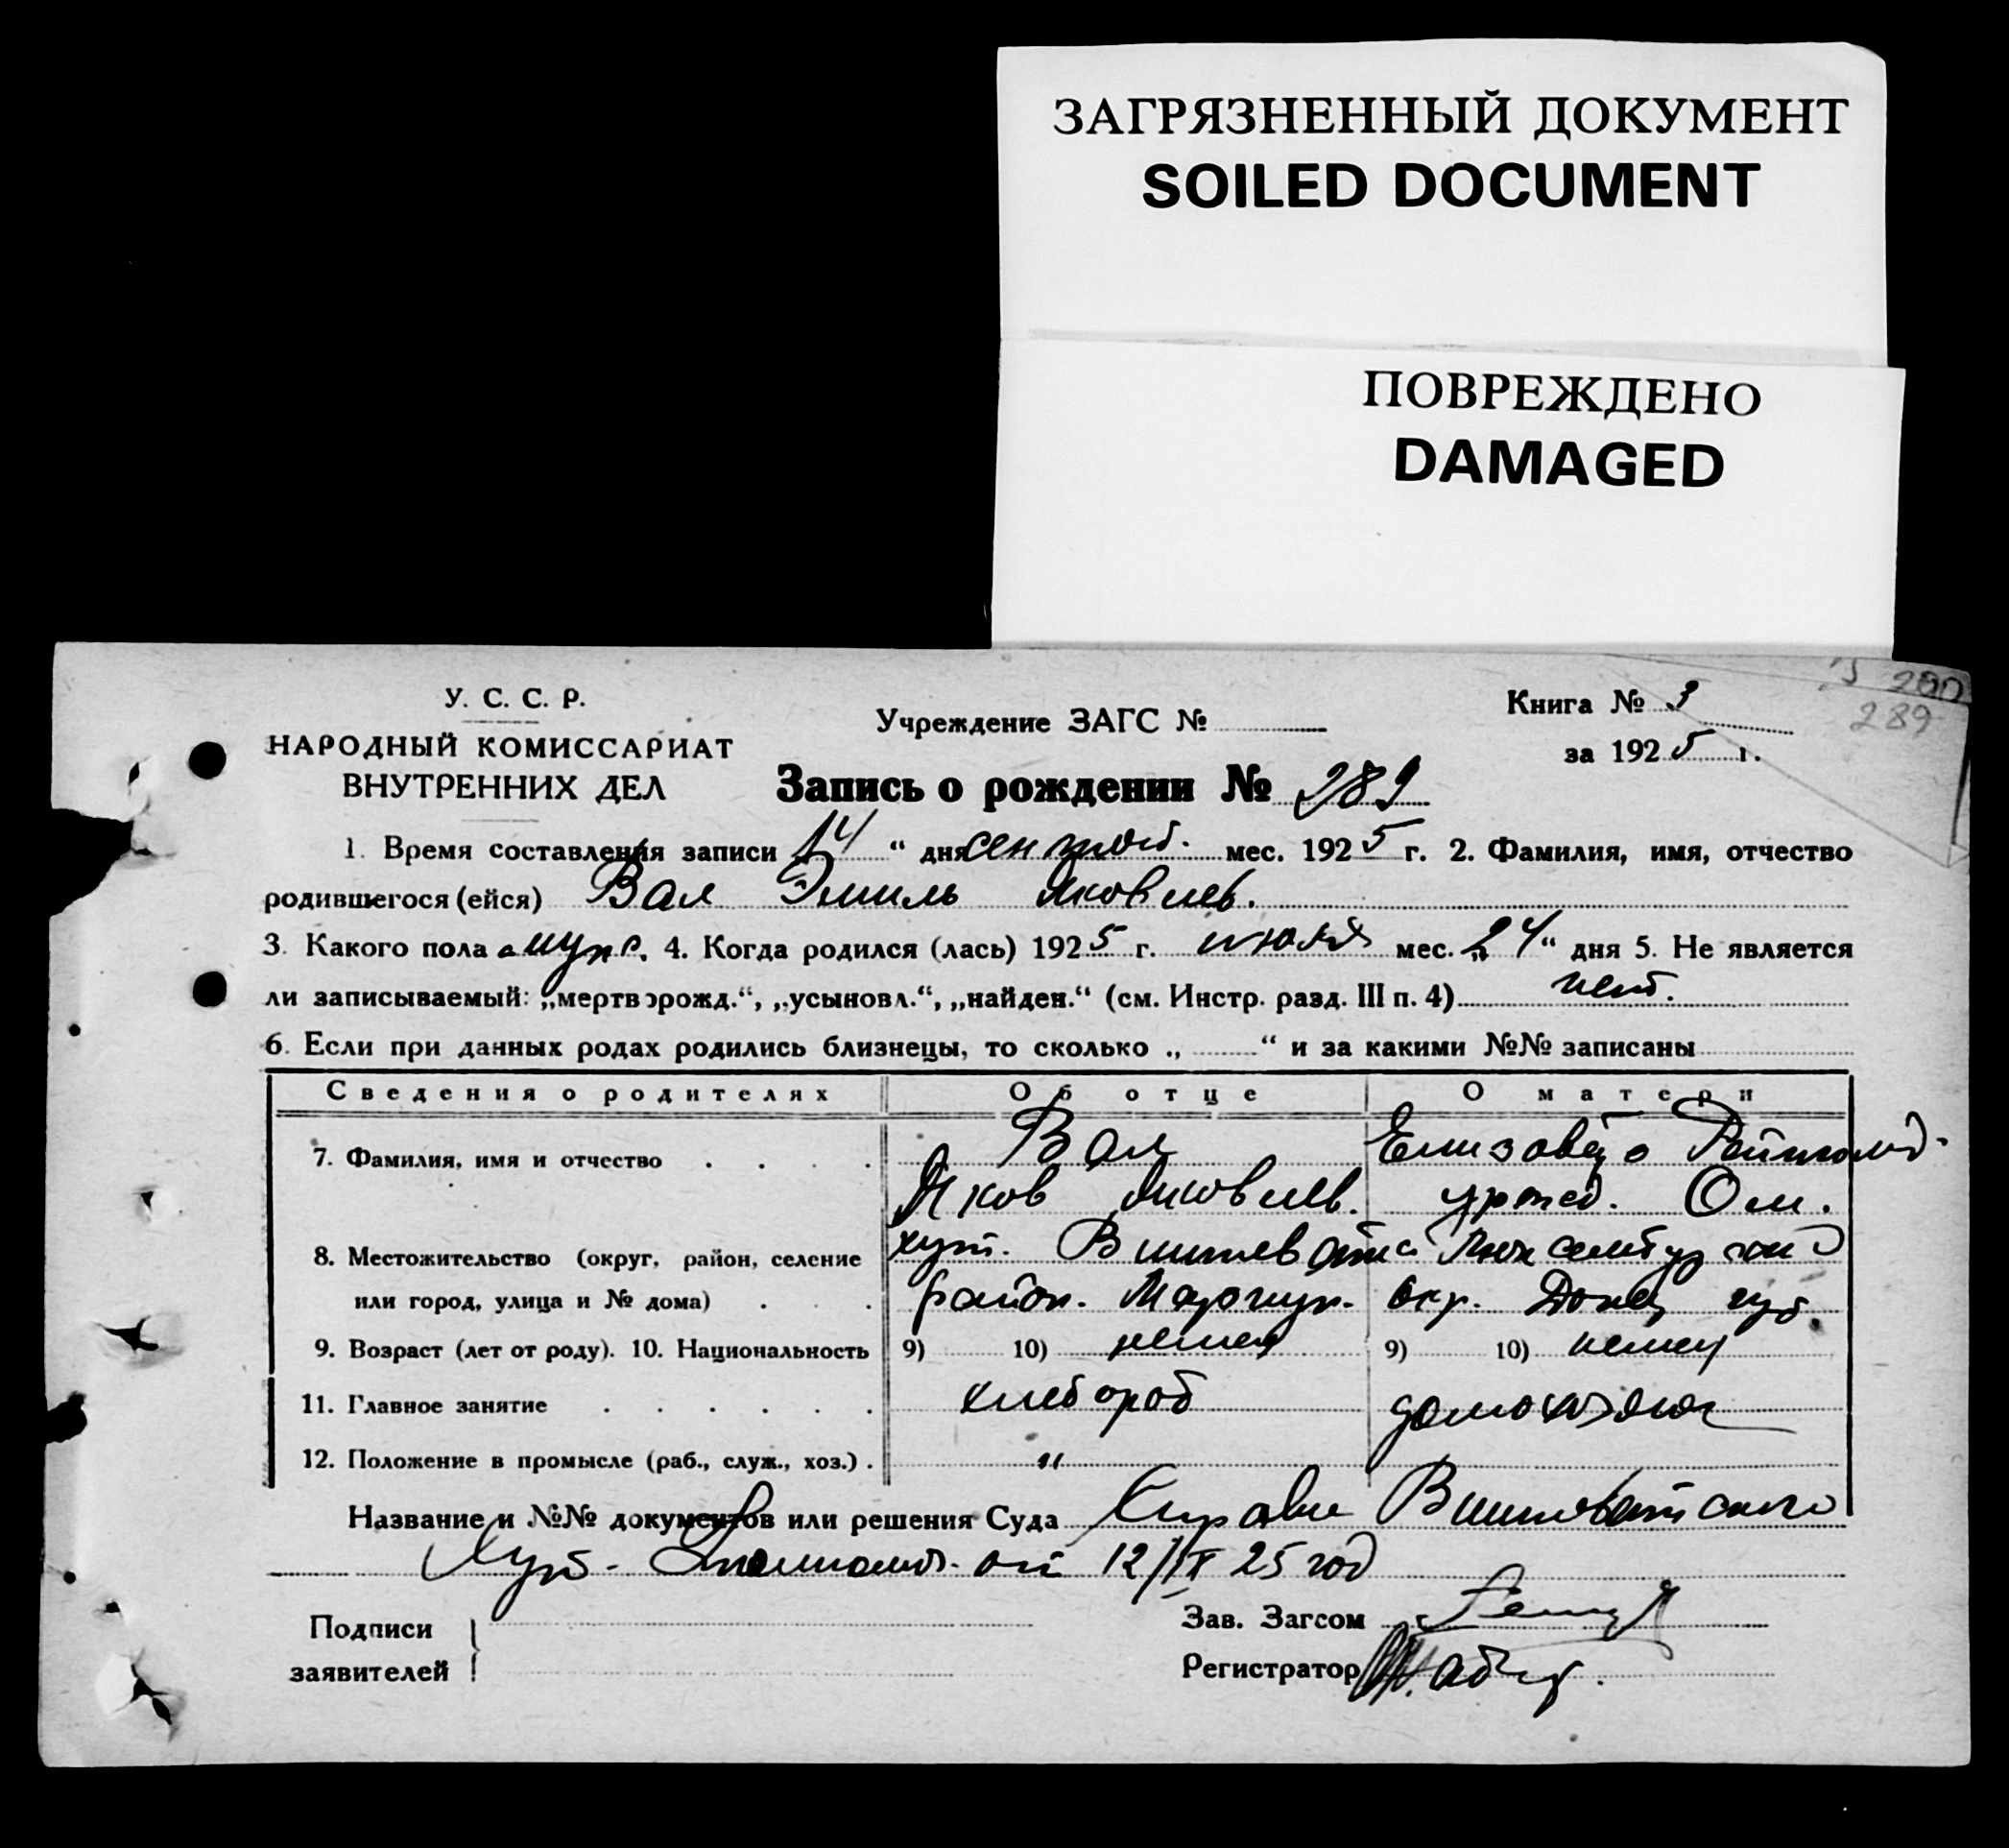 ЗАГРЯЗНЕННЫЙ ДОКУМЕНТ
SOILED DOCUMENT
ПОВРЕЖДЕНО
DAMAGED
200
289
У. С. С. Р.
НАРОДНЫЙ КОМИССАРИАТ
ВНУТРЕННИХ ДЕЛ
Учреждение ЗАГС №
Книга № 3
за 1925 г.
Запись о рождении № 289
1. Время составления записи 14 “ дня сентяб. мес. 1925 г. 2. Фамилия, имя, отчество
родившегося (ейся) Вал Эмиль Яковлев.
3. Какого пола муж. 4. Когда родился (лась) 1925 г. июля мес. „24“ дня 5. Не является
ли записываемый: „мертворожд.“, „усыновл.“, „найден.“ (см. Инстр. разд. III п. 4) нет.
6. Если при данных родах родились близнецы, то сколько „ “ и за какими №№ записаны
Сведения о родителях Об отце О матери
7. Фамилия, имя и отчество Вал Елизавета
Яков Яковлев.
8. Местожительство (округ, район, селение хут.
или город, улица и № дома) район. Мариуп. окр. Донец губ.
9. Возраст (лет от роду). 10. Национальность 9) 10) немец 9) 10) немец
11. Главное занятие хлебороб домохозяюк
12. Положение в промысле (раб., служ., хоз.) "
Название и №№ документов или решения Суда Справка
Хут. от 12/IX 25 год
Подписи
заявителей
Зав. Загсом
Регистратор